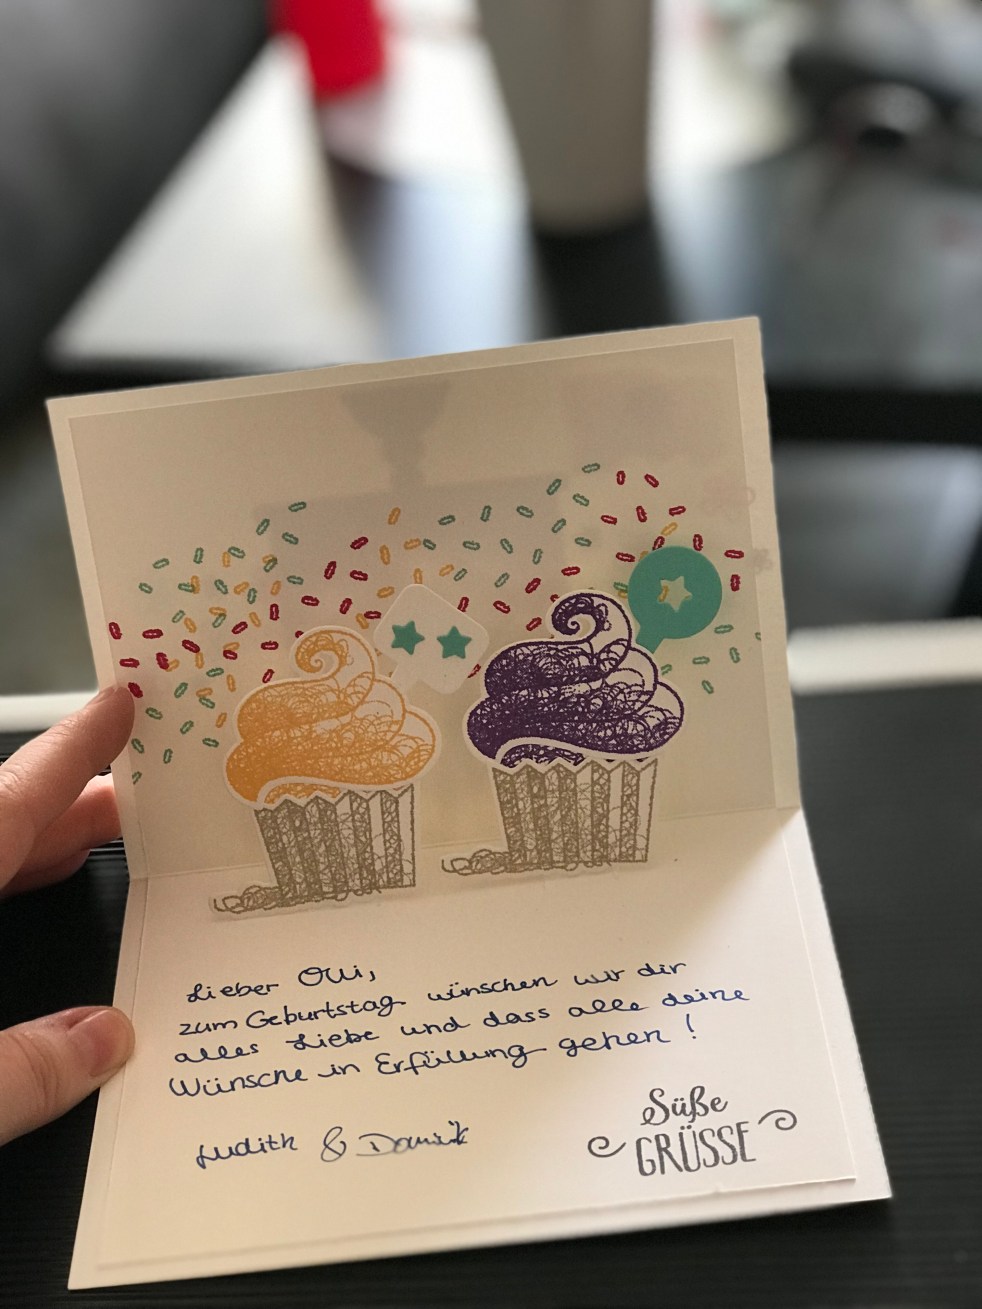 Lieber Olli,
zum Geburtstag wünschen wir dir
alles Liebe und dass alle deine
Wünsche in Erfüllung gehen!
Judith & Dominik
Süße
GRÜSSE